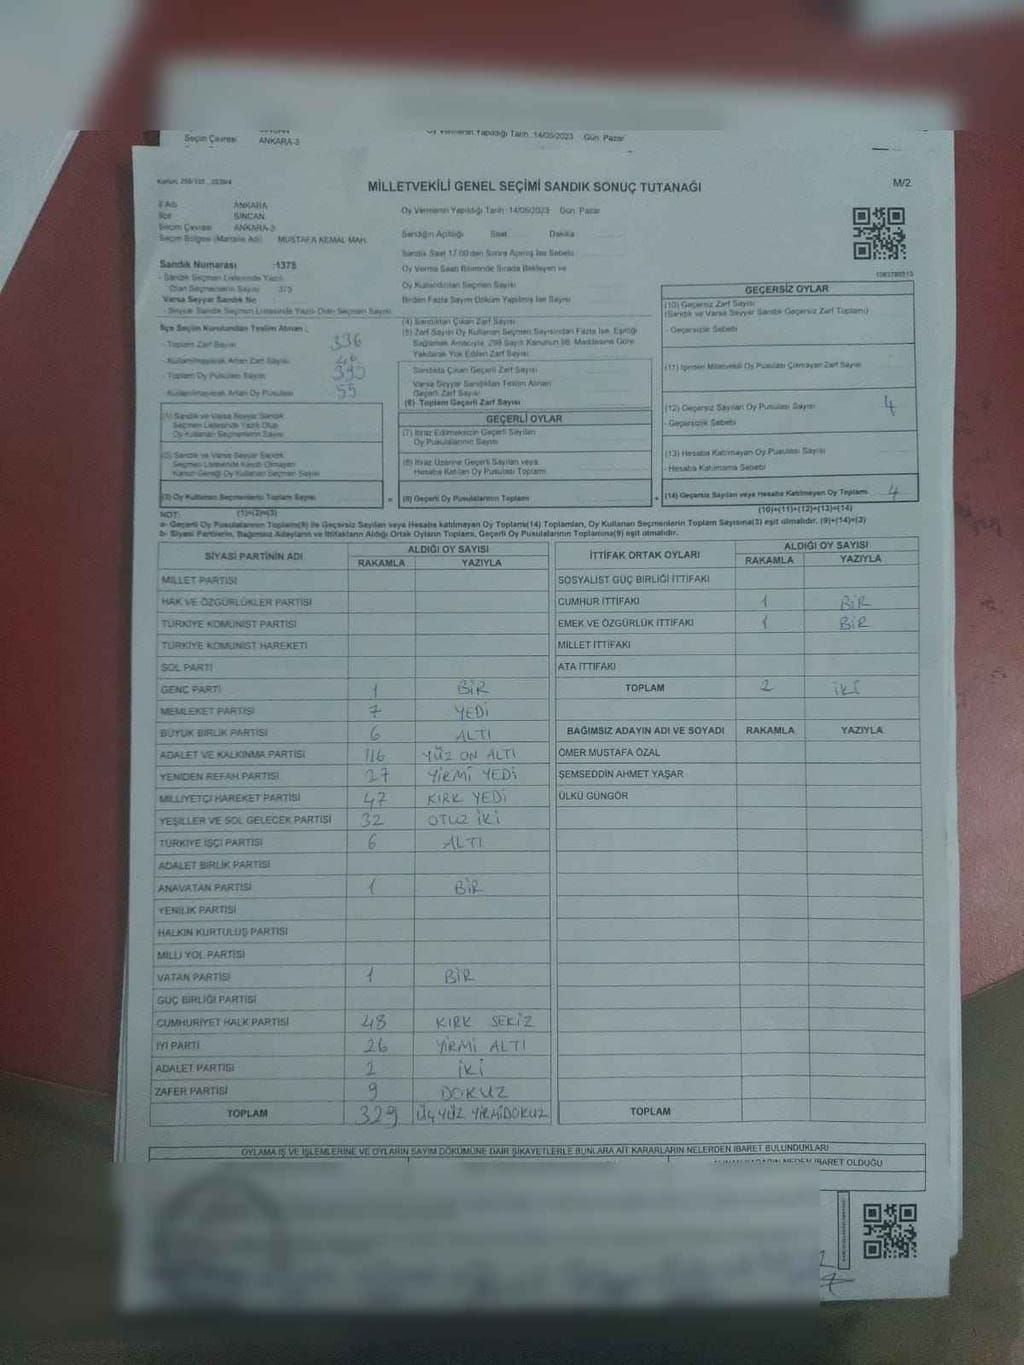 Seçim Çevresi ANKARA-3
Oy Vermenin Yapıldığı Tarih :14/05/2023 Gün: Pazar
MİLLETVEKİLİ GENEL SEÇİMİ SANDIK SONUÇ TUTANAĞI
M/2
İl Adı ANKARA
İlce SİNCAN
Seçim Çevresi ANKARA-3
Seçim Bölgesi (Mahalle Adı) MUSTAFA KEMAL MAH.
Sandık Numarası :1375
- Sandık Seçmen Listesinde Yazılı
Olan Seçmenlerin Sayısı 375
Varsa Seyyar Sandık No
- Seyyar Sandık Seçmen Listesinde Yazılı Olan Seçmen Sayısı
İlçe Seçim Kurulundan Teslim Alınan :
- Toplam Zarf Sayısı 336
- Kullanılmayarak Artan Zarf Sayısı
- Toplam Oy Pusulası Sayısı 390
- Kullanılmayarak Artan Oy Pusulası 55
(1) Sandık ve Varsa Seyyar Sandık
Seçmen Listesinde Yazılı Olup
Oy Kullanan Seçmenlerin Sayısı
(2) Sandık ve Varsa Seyyar Sandık
Seçmen Listesinde Kayıtlı Olmayan
Kanun Gereği Oy Kullanan Seçmen Sayısı
(3) Oy Kullanan Seçmenlerin Toplam Sayısı
(1)+(2)=(3)
Oy Vermenin Yapıldığı Tarih :14/05/2023 Gün: Pazar
Sandığın Açıldığı Saat Dakika
Sandık Saat 17.00'den Sonra Açılmış İse Sebebi
Oy Verme Saati Bitiminde Sırada Bekleyen ve
Oy Kullandırılan Seçmen Sayısı
Birden Fazla Sayım Döküm Yapılmış İse Sayısı
(4) Sandıktan Çıkan Zarf Sayısı
(5) Zarf Sayısı Oy Kullanan Seçmen Sayısından Fazla İse, Eşitliği
Sağlamak Amacıyla, 298 Sayılı Kanunun 98. Maddesine Göre
Yakılarak Yok Edilen Zarf Sayısı
Sandıkta Çıkan Geçerli Zarf Sayısı
Varsa Seyyar Sandıktan Teslim Alınan
Geçerli Zarf Sayısı
(6) Toplam Geçerli Zarf Sayısı
GEÇERLİ OYLAR
(7) İtiraz Edilmeksizin Geçerli Sayılan
Oy Pusulalarının Sayısı
(8) İtiraz Üzerine Geçerli Sayılan veya
Hesaba Katılan Oy Pusulası Toplamı
= (9) Geçerli Oy Pusulalarının Toplamı
GEÇERSİZ OYLAR
(10) Geçersiz Zarf Sayısı
(Sandık ve Varsa Seyyar Sandık Geçersiz Zarf Toplamı)
- Geçersizlik Sebebi
(11) İçinden Milletvekili Oy Pusulası Çıkmayan Zarf Sayısı
(12) Geçersiz Sayılan Oy Pusulası Sayısı 4
- Geçersizlik Sebebi
(13) Hesaba Katılmayan Oy Pusulası Sayısı
- Hesaba Katılmama Sebebi
+ (14) Geçersiz Sayılan veya Hesaba Katılmayan Oy Toplamı 4
(10)+(11)+(12)+(13)=(14)
NOT:
a- Geçerli Oy Pusulalarının Toplamı(9) ile Geçersiz Sayılan veya Hesaba katılmayan Oy Toplamı(14) Toplamları, Oy Kullanan Seçmenlerin Toplam Sayısına(3) eşit olmalıdır. (9)+(14)=(3)
b- Siyasi Partilerin, Bağımsız Adayların ve İttifakların Aldığı Ortak Oyların Toplamı, Geçerli Oy Pusulalarının Toplamına(9) eşit olmalıdır.
SİYASİ PARTİNİN ADI ALDIĞI OY SAYISI
RAKAMLA YAZIYLA
MİLLET PARTİSİ
HAK VE ÖZGÜRLÜKLER PARTİSİ
TÜRKİYE KOMÜNİST PARTİSİ
TÜRKİYE KOMÜNİST HAREKETİ
SOL PARTİ
GENÇ PARTİ 1 BİR
MEMLEKET PARTİSİ 7 YEDİ
BÜYÜK BİRLİK PARTİSİ 6 ALTI
ADALET VE KALKINMA PARTİSİ 116 YÜZ ON ALTI
YENİDEN REFAH PARTİSİ 27 YİRMİ YEDİ
MİLLİYETÇİ HAREKET PARTİSİ 47 KIRK YEDİ
YEŞİLLER VE SOL GELECEK PARTİSİ 32 OTUZ İKİ
TÜRKİYE İŞÇİ PARTİSİ 6 ALTI
ADALET BİRLİK PARTİSİ
ANAVATAN PARTİSİ 1 BİR
YENİLİK PARTİSİ
HALKIN KURTULUŞ PARTİSİ
MİLLİ YOL PARTİSİ
VATAN PARTİSİ 1 BİR
GÜÇ BİRLİĞİ PARTİSİ
CUMHURİYET HALK PARTİSİ 48 KIRK SEKİZ
İYİ PARTİ 26 YİRMİ ALTI
ADALET PARTİSİ 2 İKİ
ZAFER PARTİSİ 9 DOKUZ
TOPLAM 329 ÜÇ YÜZ YİRMİDOKUZ
İTTİFAK ORTAK OYLARI ALDIĞI OY SAYISI
RAKAMLA YAZIYLA
SOSYALİST GÜÇ BİRLİĞİ İTTİFAKI
CUMHUR İTTİFAKI 1 BİR
EMEK VE ÖZGÜRLÜK İTTİFAKI 1 BİR
MİLLET İTTİFAKI
ATA İTTİFAKI
TOPLAM 2 İKİ
BAĞIMSIZ ADAYIN ADI VE SOYADI RAKAMLA YAZIYLA
ÖMER MUSTAFA ÖZAL
ŞEMSEDDİN AHMET YAŞAR
ÜLKÜ GÜNGÖR
TOPLAM
OYLAMA İŞ VE İŞLEMLERİNE VE OYLARIN SAYIM DÖKÜMÜNE DAİR ŞİKAYETLERLE BUNLARA AİT KARARLARIN NELERDEN İBARET BULUNDUKLARI
NEDEN İBARET OLDUĞU